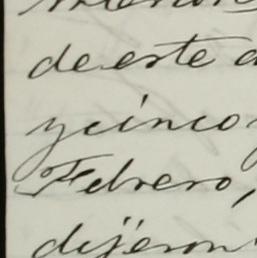 de este
y cinco
Febrero,
dijeron